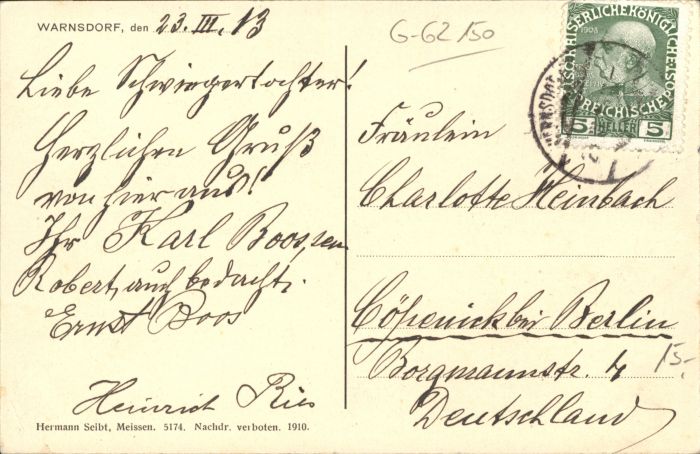 WARNSDORF, den 23. III. 13
Liebe Schwiegertochter!
Herzlichen Gruß
von hier aus!
Ihr Karl Boos, sen.
Robert, auch bedacht.
Ernst Boos
Heinrich Ries
Hermann Seibt, Meissen. 5174. Nachdr. verboten. 1910.
G-62/50
KAISERLICHE KÖNIGLICHE
1908
5 HELLER 5
WARNSDORF
Fräulein
Charlotte Heinbach
Cöpenick bei Berlin
Borgmannstr. 4
Deutschland
15-